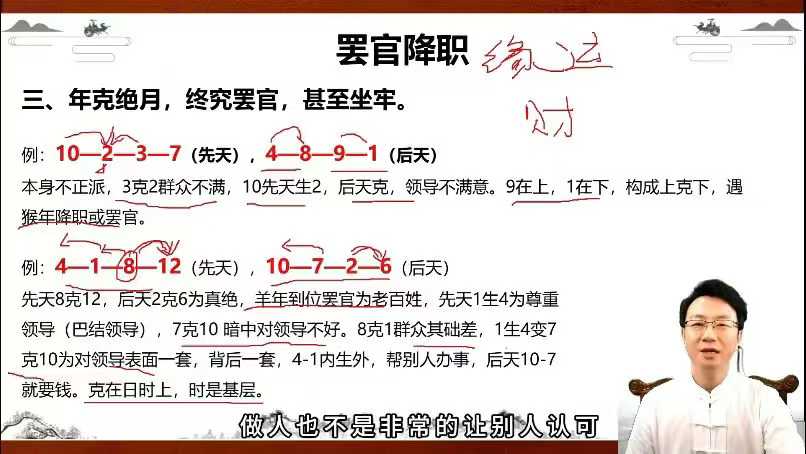 罢官降职 缘运
财
三、年克绝月，终究罢官，甚至坐牢。
例：10—2—3—7（先天），4—8—9—1（后天）
本身不正派，3克2群众不满，10先天生2，后天克，领导不满意。9在上，1在下，构成上克下，遇
猴年降职或罢官。
例：4—1—8—12（先天），10—7—2—6（后天）
先天8克12，后天2克6为真绝，羊年到位罢官为老百姓，先天1生4为尊重
领导（巴结领导），7克10 暗中对领导不好。8克1群众其础差，1生4变7
克10为对领导表面一套，背后一套，4-1内生外，帮别人办事，后天10-7
就要钱。克在日时上，时是基层。
做人也不是非常的让别人认可